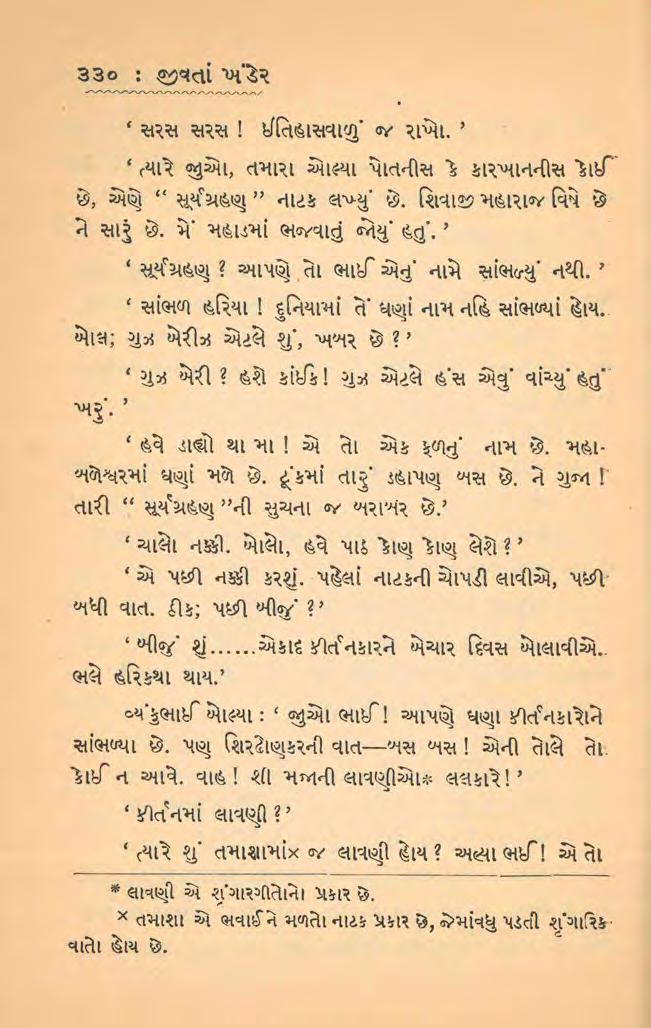 ૩૩૦ : જીવતાં ખંડેર
‘ સરસ સરસ ! ઈતિહાસવાળું જ રાખો. ’
‘ ત્યારે જુઓ, તમારા ઓલ્યા પોતનીસ કે કારખાનનીસ કોઈ
છે, એણે “ સૂર્યગ્રહણ ” નાટક લખ્યું છે. શિવાજી મહારાજ વિષે છે
ને સારું છે. મેં મહાડમાં ભજવાતું જોયું હતું. ’
‘ સૂર્યગ્રહણ ? આપણે તો ભાઈ એનું નામે સાંભળ્યું નથી. ’
‘ સાંભળ હરિયા ! દુનિયામાં તેં ઘણાં નામ નહિ સાંભળ્યાં હોય.
બોલ; ગુઝ બેરીઝ એટલે શું, ખબર છે ? ’
‘ ગુઝ બેરી ? હશે કાંઈક! ગુઝ એટલે હંસ એવું વાંચ્યું હતું
ખરું. ’
‘ હવે ડાહ્યો થા મા ! એ તો એક ફળનું નામ છે. મહા-
બળેશ્વરમાં ઘણાં મળે છે. ટૂંકમાં તારું ડહાપણ બસ છે. ને ગુજા !
તારી “ સૂર્યગ્રહણ ”ની સુચના જ બરાબર છે.’
‘ ચાલો નક્કી. બોલો, હવે પાઠ કોણ કોણ લેશે ? ’
‘ એ પછી નક્કી કરશું. પહેલાં નાટકની ચોપડી લાવીએ, પછી
બધી વાત. ઠીક; પછી બીજું ? ’
‘ બીજું શું......એકાદ કીર્તનકારને બેચાર દિવસ બોલાવીએ.
ભલે હરિકથા થાય.’
વ્યંકુભાઈ બોલ્યા : ‘ જુઓ ભાઈ ! આપણે ઘણા કીર્તનકારોને
સાંભળ્યા છે. પણ શિરઢોણકરની વાત—બસ બસ ! એની તોલે તો
કોઈ ન આવે. વાહ ! શી મજાની લાવણીઓ* લલકારે ! ’
‘ કીર્તનમાં લાવણી ? ’
‘ ત્યારે શું તમાશામાં× જ લાવણી હોય ? અલ્યા ભઈ ! એ તો
* લાવણી એ શૃંગારગીતોનો પ્રકાર છે.
× તમાશા એ ભવાઈને મળતો નાટક પ્રકાર છે, જેમાંવધુ પડતી શૃંગારિક
વાતો હોય છે.